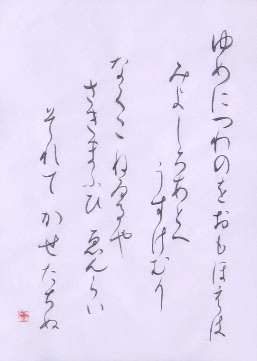 ゆめにつわのをおもほえは
みよしろあとへ
うすけむり
なくこ ねゐるや
さきまふひ ゑんらい
それて かせたちぬ